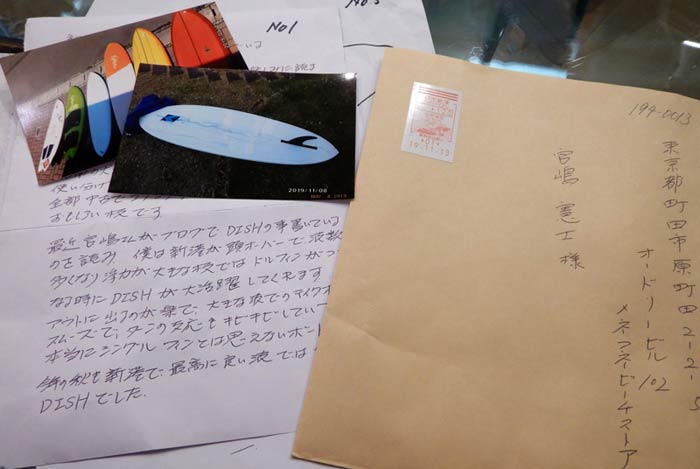 No1
2019/11/08
使い分け
全部中古で
おもしろい板です
最近宮嶋さんがブログでDISHの事書いている
のを読み 僕は新港が頭オーバーで波数
多くなり浮力が大きな板ではドルフィンがつ
な時にDISHが大活躍してくれます
アウトに出るのが楽で、大きな波でのテイクオ
スムーズで、ターンの反応もキビキビしてい
本当にシングルフィンとは思えないボード
今年の秋も新港で最高に良い波では
DISHでした。
19.11.13
194-0013
東京都町田市原町田2-2-5
オードリービル102
メネフネビーチストア
宮嶋憲士様